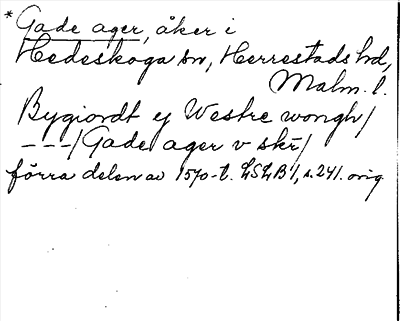 * Gade ager, åker i
Hedeskoga sn, Herrestads hd,
Malm. l.
Bygiordt ej Westre wongh/
---/Gade ager v skr̄/
förra delen av 1570-t. LSLB1, s. 241. orig.